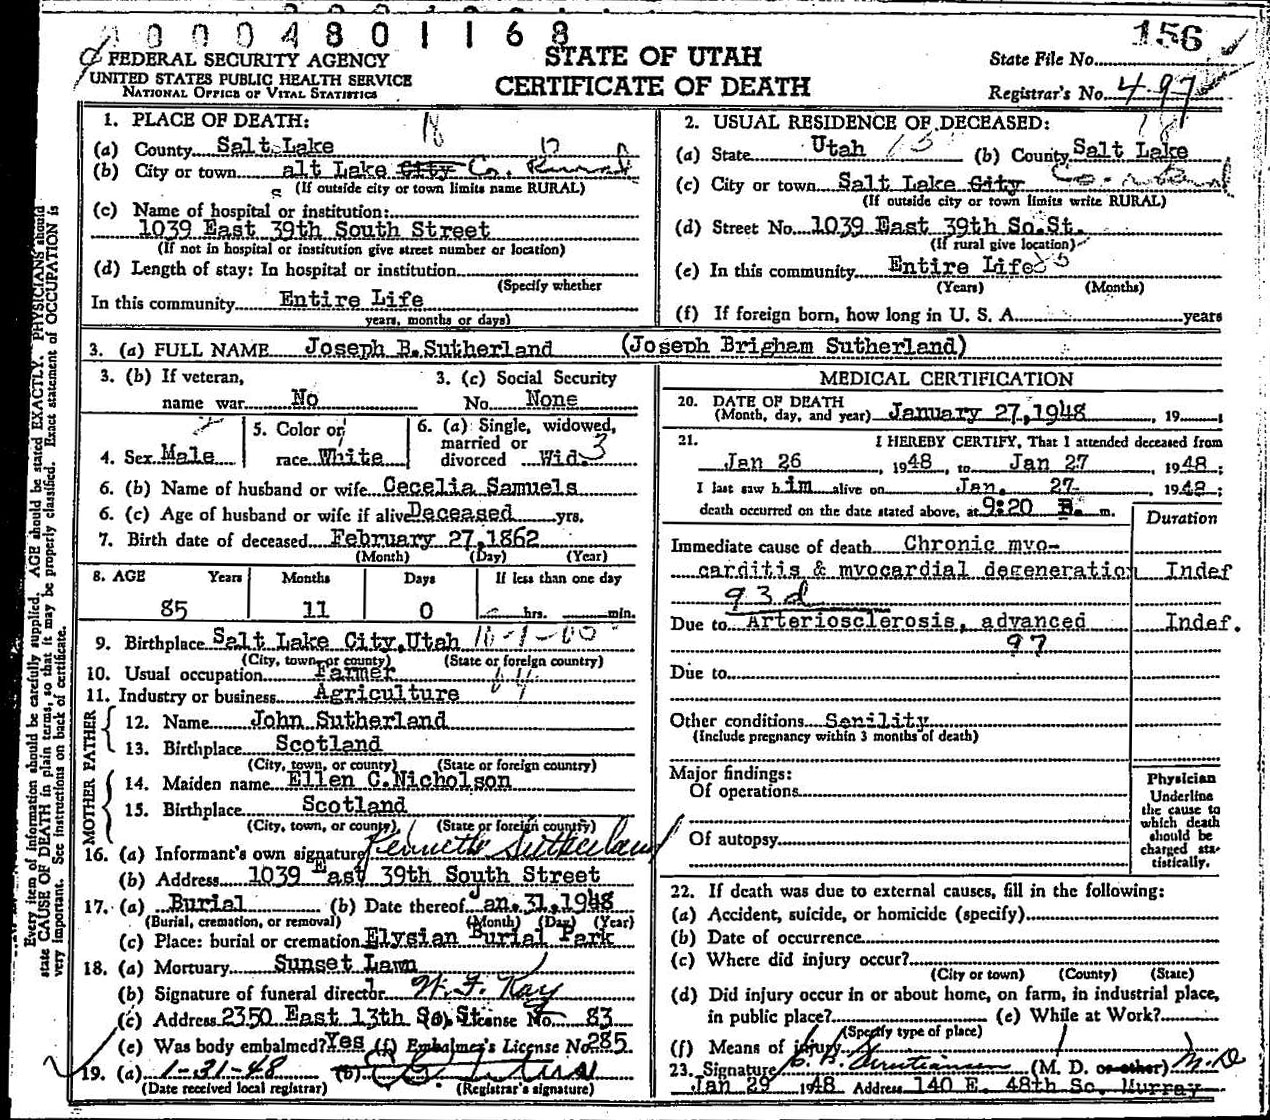 0 0 0 4 8 0 1 1 6 8
156
FEDERAL SECURITY AGENCY
UNITED STATES PUBLIC HEALTH SERVICE
NATIONAL OFFICE OF VITAL STATISTICS
STATE OF UTAH
CERTIFICATE OF DEATH
State File No.
Registrar's No. 497
1. PLACE OF DEATH: 18
(a) County Salt Lake
(b) City or town alt Lake City Co. Rural
s (If outside city or town limits name RURAL)
(c) Name of hospital or institution:
1039 East 39th South Street
(If not in hospital or institution give street number or location)
(d) Length of stay: In hospital or institution
(Specify whether
In this community Entire Life
years, months or days)
2. USUAL RESIDENCE OF DECEASED: 18
(a) State Utah (b) County Salt Lake
(c) City or town Salt Lake City Co. rural
(If outside city or town limits write RURAL)
(d) Street No. 1039 East 39th So.St.
(If rural give location)
(e) In this community Entire Life 85
(Years) (Months)
(f) If foreign born, how long in U. S. A. years
3. (a) FULL NAME Joseph B.Sutherland (Joseph Brigham Sutherland)
3. (b) If veteran, 3. (c) Social Security
name war No No. None
4. Sex Male
5. Color or
race White
6. (a) Single, widowed,
married or
divorced Wid. 3
6. (b) Name of husband or wife Cecelia Samuels
6. (c) Age of husband or wife if alive Deceased yrs.
7. Birth date of deceased February 27,1862
(Month) (Day) (Year)
8. AGE Years Months Days If less than one day
85 11 0 hrs. min.
9. Birthplace Salt Lake City,Utah
(City, town, or county) (State or foreign country)
10. Usual occupation Farmer
11. Industry or business Agriculture
FATHER
12. Name John Sutherland
13. Birthplace Scotland
(City, town, or county) (State or foreign country)
MOTHER
14. Maiden name Ellen C.Nicholson
15. Birthplace Scotland
(City, town, or county) (State or foreign country)
16. (a) Informant's own signature Kenneth Sutherland
(b) Address 1039 East 39th South Street
17. (a) Burial (b) Date thereof Jan.31,1948
(Burial, cremation, or removal) (Month) (Day) (Year)
(c) Place: burial or cremation Elysian Burial Park
18. (a) Mortuary Sunset Lawn
(b) Signature of funeral director W. F. Kay
(c) Address 2350 East 13th So.St. (d) License No. 83
(e) Was body embalmed? Yes (f) Embalmer's License No. 285
19. (a) 1-31-48 (b)
(Date received local registrar) (Registrar's signature)
MEDICAL CERTIFICATION
20. DATE OF DEATH
(Month, day, and year) January 27,1948, 19
21. I HEREBY CERTIFY, That I attended deceased from
Jan 26, 1948, to Jan 27 1948;
I last saw him alive on Jan. 27 1948;
death occurred on the date stated above, at 9:20 m.
Duration
Immediate cause of death Chronic myo-
carditis & myocardial degeneration Indef
93d
Due to Arteriosclerosis, advanced Indef.
97
Due to
Other conditions Senility
(Include pregnancy within 3 months of death)
Major findings:
Of operations
Of autopsy
Physician
Underline
the cause to
which death
should be
charged sta-
tistically.
22. If death was due to external causes, fill in the following:
(a) Accident, suicide, or homicide (specify)
(b) Date of occurrence
(c) Where did injury occur?
(City or town) (County) (State)
(d) Did injury occur in or about home, on farm, in industrial place,
in public place? (e) While at Work?
(Specify type of place)
(f) Means of injury
23. Signature Christiansen (M. D. or other) M.D
Jan 29 1948 Address 140 E. 48th So. Murray
Every item of information should be carefully supplied. AGE should be stated EXACTLY. PHYSICIANS should
state CAUSE OF DEATH in plain terms, so that it may be properly classified. Exact statement of OCCUPATION is
very important. See instructions on back of certificate.